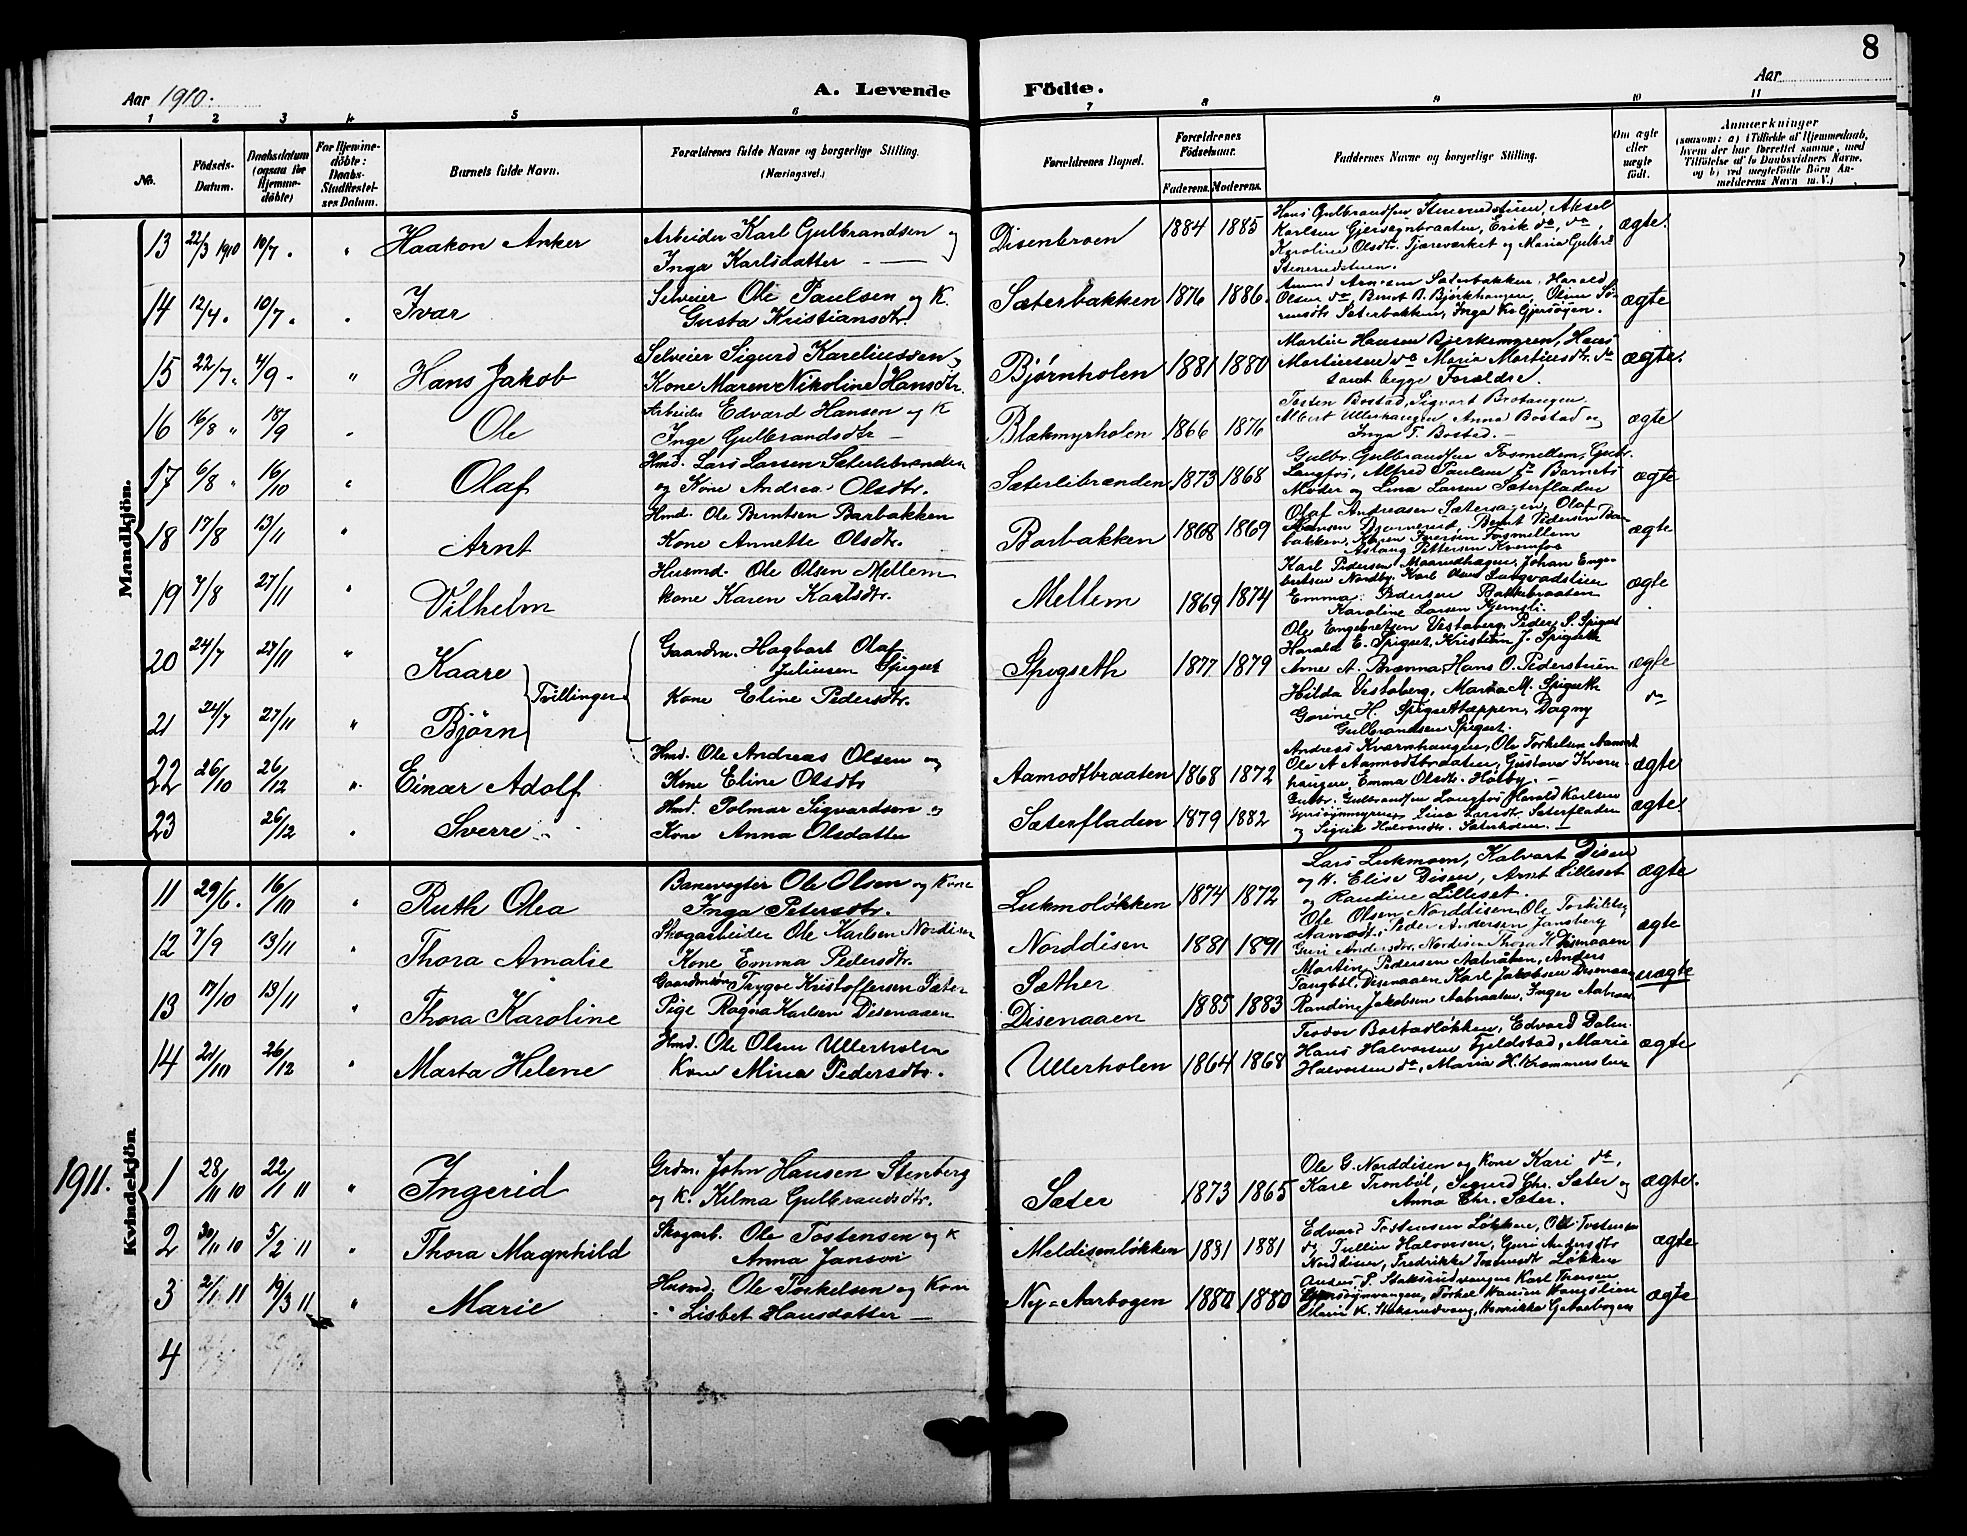 8
Aar 1910.
A. Levende
Födte.
Aar
1 2 3 4 5 6 7 8 9 10 11
No.
Födsels-Datum.
Daabsdatum (ogsaa for Hjemmedöbte)
For Hjemmedöbte: Daabs-Stadfæstelses Datum.
Barnets fulde Navn.
Forældrenes fulde Navne og borgerlige Stilling. (Næringsvei.)
Forældrenes Bopæl.
Forældrenes Födselsaar.
Faderens. Moderens.
Faddernes Navne og borgerlige Stilling.
Om ægte eller uægte födt.
Anmærkninger
(saasom: a) i Tilfælde af Hjemmedaab, hvem der har forrettet samme, med Tilföielse af to Daabsvidners Navne, og b) ved uægtefödte Börn Anmelderens Navn m. V.)
Mandkjön.
13 22/3 1910 10/7 " Haakon Anker
Arbeider Karl Gulbrandsen og
Inga Karlsdatter
Disenbroen 1884 1885
Hans Gulbrandsen Stenerudstuen, Aksel
Karlsen Gjersøynbraaten, Erik do, do,
Karoline Olsdtr. Tjæreverket og Maria Gulbr.
Stenerudstuen.
ægte.
14 12/4 10/7 " Ivar
Selveier Ole Paulsen og K.
Gusta Kristiansdtr.
Sæterbakken 1876 1886
Olsen do, Bernt B. Bjørkhaugen, Oline
ægte
15 22/7 4/9 " Hans Jakob
Selveier Sigurd Kareliussen og
Kone Maren Nikoline Hansdtr.
Bjørnholen 1881 1880
Martin Hansen Bjerkemyren, Hans
Martinsen do Maria Martinsdtr. do
samt begge Forældre.
ægte.
16 16/8 18/9 " Ole
Arbeider Edvard Hansen og K
Inge Gulbrandsdtr
Blakmyrholen 1866 1876
Tosten Bostad, Sigvart Brotangen
Albert Ullerhaugen Anna Bostad og
Inga T. Bostad.
ægte
17 6/8 16/10 " Olaf
Hmd. Lars Larsen Sæterlibrænden
og Kone Andrea Olsdtr.
Sæterlibrænden 1873 1868
Gulbr. Gulbrandsen Fosmellem, Gulbr.
Langfos, Alfred Paulsen do Barnets
Moder og Lina Larsen Sæterfladen
ægte
18 17/8 13/11 " Arnt
Hmd. Ole Berntsen Barbakken
Kone Annette Olsdtr.
Barbakken 1868 1869
Olaf Andreasen
Aslaug Pettersen Kvernfos
ægte
19 7/8 27/11 " Vilhelm
Husmd. Ole Olsen Mellem
Kone Karen Karlsdtr.
Mellem 1869 1874
Karl Pedersen Maarudhagen, Johan Enge-
bertsen Nordby, Karl Olsen
Emma Pedersen Bakkebraaten
Karoline Larsen Kjernsli.
ægte
20 24/7 27/11 " Kaare
Tvillinger
Gaardm. Hagbart Olaf
Juliusen Spigset
Kone Eline Pedersdtr.
Spigseth 1877 1879
Ole Engebretsen Vestaberg, Peder S. Spigset
Harald E. Spigset, Kristian J. Spigseth
Arne A. Brænna Hans O. Pederstuen
ægte
21 24/7 27/11 " Bjørn
Hilda Vestaberg, Martha M. Spigseth
Gorine H. Spigsettæppen, Dagny
Gulbrandsen Spigset.
do
22 26/10 26/12 " Einar Adolf
Hmd. Ole Andreas Olsen og
Kone Eline Olsdtr
Aamodtbraaten 1868 1872
Andreas Kværnhaugen, Ole Torkelsen Aamodt
Ole A Aamodtbraaten, Gustava Kvern-
haugen, Emma Olsdtr. Holby.
ægte
23 26/12 " Sverre
Hmd. Polmar Sigvardsen og
Kone Anna Olsdatter
Sæterfladen 1879 1882
Gulbr. Gulbrandsen Langfos Harald Karlsen
Gjersøynmyren, Lina Larsdtr. Sæterfladen
og Signe Halvorsdtr. Sæterholen.
ægte.
Kvindekjön
11 29/6 16/10 " Ruth Olea
Banevogter Ole Olsen og Kone
Inga Petersdtr.
Lukmoløkken 1874 1872
Lars Lukmoen, Halvart Disen
og K. Elise Disen, Arnt Lilleset
og Randine Lilleset.
ægte
12 7/9 13/11 Thora Amalie
Skogarbeider Ole Karlsen Nordisen
Kone Emma Pedersdtr.
Norddisen 1881 1891
Ole Olsen Norddisen, Ole Torkilsen
Aamodt, Peder Andersen Jansberg
Guri Andersdtr. Nordisen Thora K Disenaaen
ægte
13 17/10 13/11 " Thora Karoline
Gaardmandssøn Trygve Kristoffersen Sæter
Pige Ragna Karlsen Disenaaen
Sæther
Disenaaen 1885 1883
Martin Pedersen Aabraaten, Anders
Tangbøl, Disenaaen Karl Jakobsen Disenaaen
Randine Jakobsen Aabraaten, Inger Aabraa
uægte
14 21/10 26/12 " Marta Helene
Hmd. Ole Olsen Ullerholen
Kone Mina Pedersdtr.
Ullerholen 1864 1868
Teodor Bostadløkken, Edvard Dalen
Hans Halvorsen Fjeldstad, Marie
Halvorsen do, Maria H. Krommerstuen
ægte
1911.
1 28/11 10 22/1 11 " Ingerid
Grdm. John Hansen Stenberg
og K. Hilma Gulbrandsdtr.
Sæter 1873 1865
Ole G. Norddisen og Kone Kari do,
Kare Tronbøl, Sigurd Chr. Sæter og
Anna Chr. Sæter.
ægte.
2 30/11 10 5/2 11 " Thora Magnhild
Skogarb. Ole Tostensen og K
Anna Jansdtr
Meldisenløkken 1881 1881
Edvard Tostensen Løkken, Ole Tostensen
do, Tullin Halvorsen, Guri Andersdtr
Norddisen, Fredrikke Tostensdtr Løkken
ægte
3 2/1 11 19/3 11 " Marie
Husmd. Ole Torkelsen og Kone
Lisbet Hansdatter
Ny-Aarbogen 1880 1880
Anders P. Staksrudvangen Karl Thoresen
Gjersøynvangen, Torkel Hansen Vangslien
Marie K. Staksrudvang, Henrikka G. Aarbogen
ægte
4